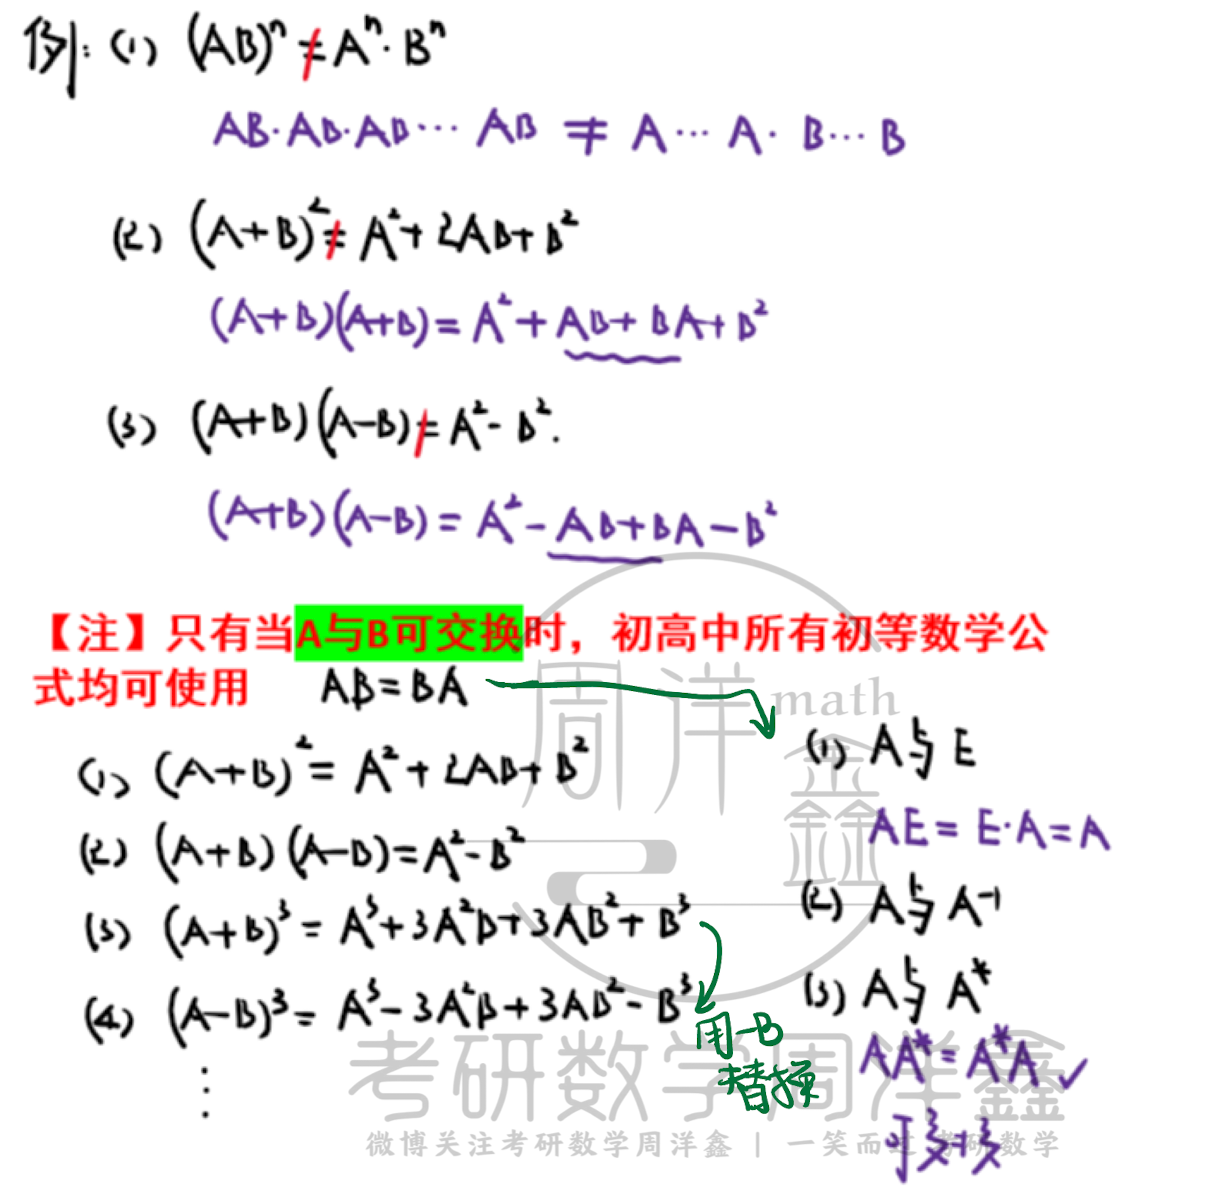 例: (1) (AB)ⁿ ≠ Aⁿ · Bⁿ
AB·AB·AB··· AB ≠ A··· A· B··· B
(2) (A+B)² ≠ A²+2AB+B²
(A+B)(A+B)=A²+AB+BA+B²
(3) (A+B)(A-B) ≠ A²-B².
(A+B)(A-B)=A²-AB+BA-B²
【注】只有当A与B可交换时，初高中所有初等数学公
式均可使用 AB=BA
(1) (A+B)²=A²+2AB+B²
(2) (A+B)(A-B)=A²-B²
(3) (A+B)³=A³+3A²B+3AB²+B³
(4) (A-B)³=A³-3A²B+3AB²-B³
⋮
用-B
替换
(1) A与E
AE=E·A=A
(2) A与A⁻¹
(3) A与A*
AA*=A*A ✓
可交换
周洋鑫
math
考研数学周洋鑫
微博关注考研数学周洋鑫 | 一笑而过考研数学